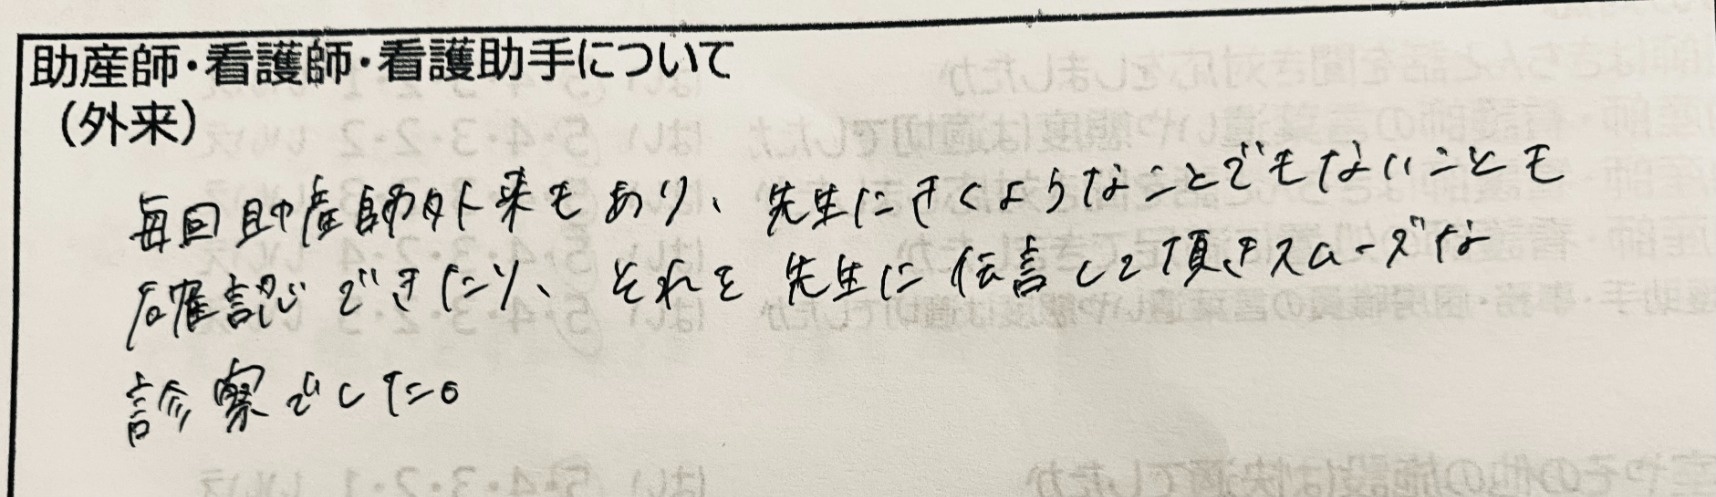 助産師・看護師・看護助手について
（外来）
毎回助産師外来もあり、先生にきくようなことでもないことも
確認できたり、それを先生に伝言して頂きスムーズな
診察でした。